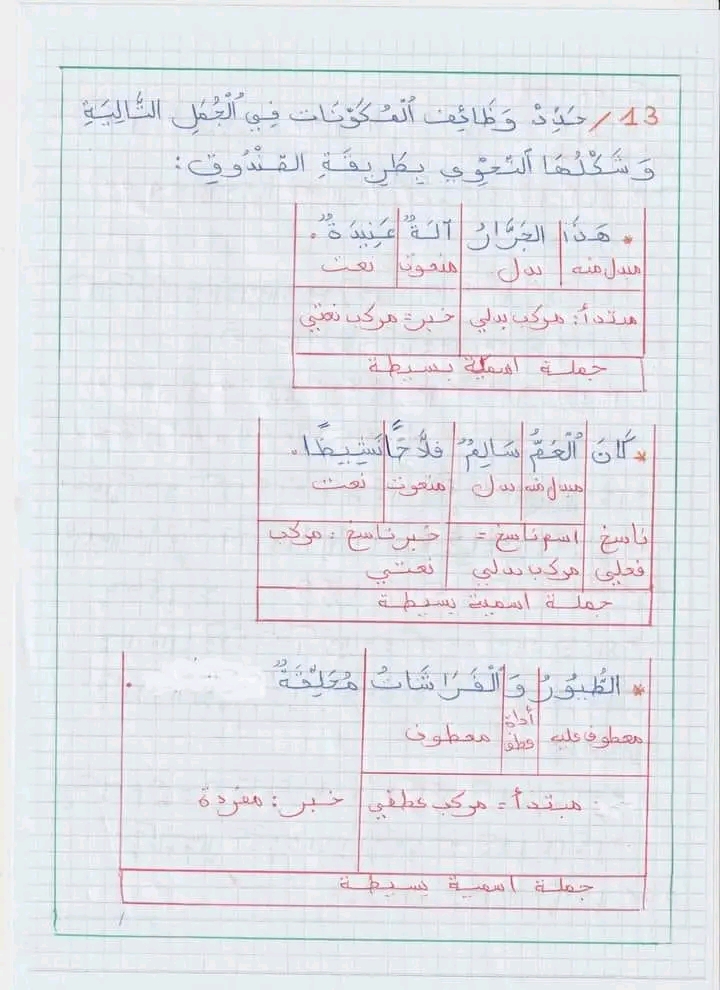 13/ حَدِّدْ وَظَائِفَ اَلْمُكَوِّنَاتِ فِي اَلْجُمَلِ التَّالِيَةِ
وَشَكْلُهَا اَلنَّحْوِي بِطَرِيقَةِ الصُّنْدُوقِ:
* هَذَا الجَرَّارُ آلَةٌ عَنِيدَةٌ.
مبدل منه بدل منعوت نعت
مبتدأ: مركب بدلي خبر: مركب نعتي
جملة اسمية بسيطة
* كَانَ اَلْعَمُّ سَالِمٌ فلاَّحًا نَشِيطًا.
مبدل منه بدل منعوت نعت
ناسخ اسم ناسخ = خبر ناسخ : مركب
فعلي مركب بدلي نعتي
جملة اسمية بسيطة
* الطُّيُورُ وَالْفَرَاشَاتُ مُحَلِّقَةٌ .
معطوف عليه أداة عطف معطوف
مبتدأ = مركب عطفي خبر: مفردة
جملة اسمية بسيطة